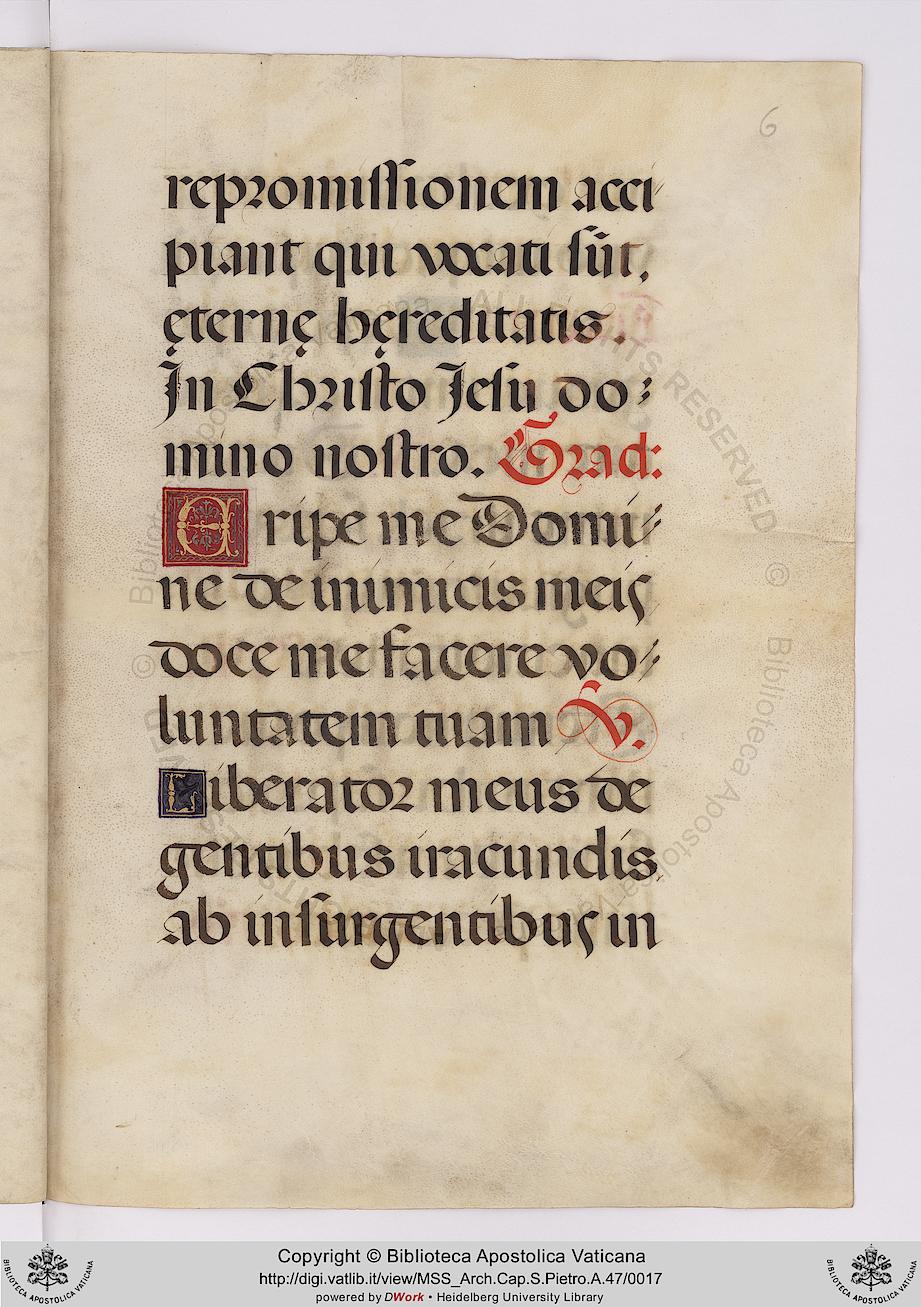 6
repromissionem acci
piant qui vocati sūt,
ęternę hęreditatis.
In Christo Jesu do:
mino nostro. Grad:
Eripe me Domi:
ne de inimicis meis
doce me facere vo:
luntatem tuam V.
Liberator meus de
gentibus iracundis
ab insurgentibus in
Copyright © Biblioteca Apostolica Vaticana
http://digi.vatlib.it/view/MSS_Arch.Cap.S.Pietro.A.47/0017
powered by DWork • Heidelberg University Library
BIBLIOTECA APOSTOLICA VATICANA
BIBLIOTECA APOSTOLICA VATICANA